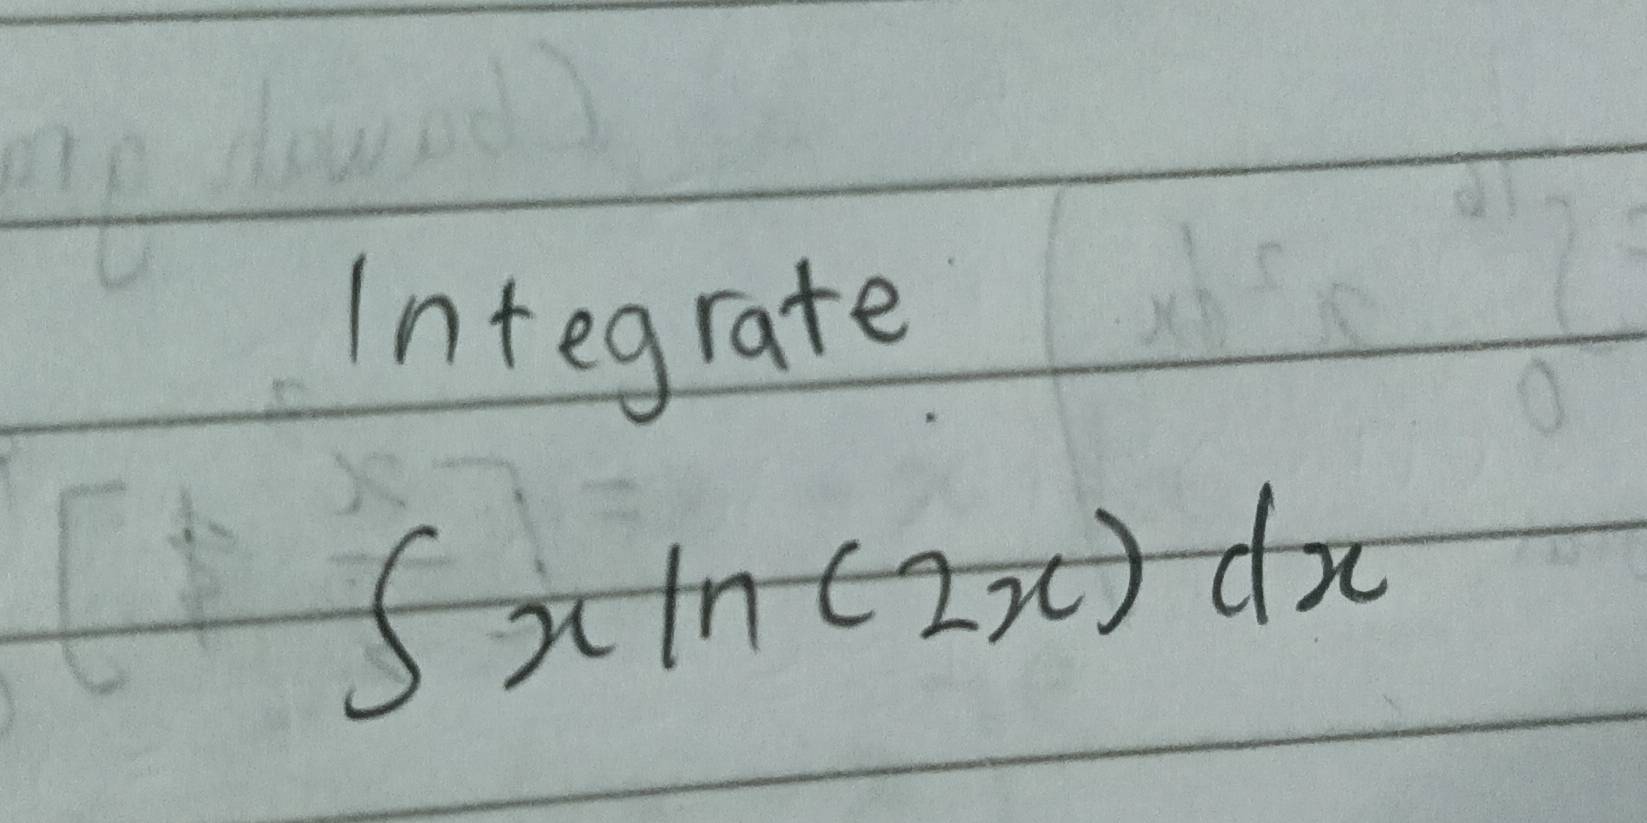 Integrate
∫ x ln(2x) dx